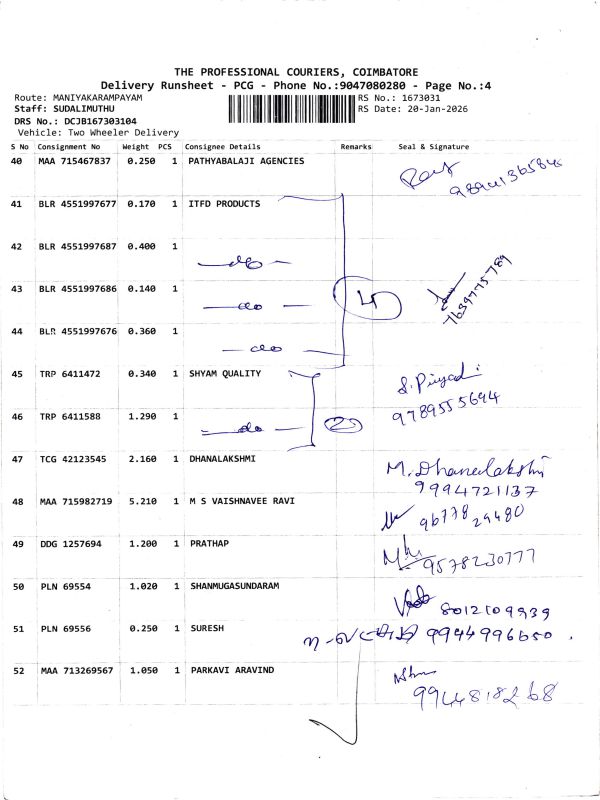 THE PROFESSIONAL COURIERS, COIMBATORE
Delivery Runsheet - PCG - Phone No.:9047080280 - Page No.:4
Route: MANIYAKARAMPAYAM RS No.: 1673031
Staff: SUDALIMUTHU RS Date: 20-Jan-2026
DRS No.: DCJB167303104
Vehicle: Two Wheeler Delivery
S No Consignment No Weight PCS Consignee Details Remarks Seal & Signature
40 MAA 715467837 0.250 1 PATHYABALAJI AGENCIES
41 BLR 4551997677 0.170 1 ITFD PRODUCTS
42 BLR 4551997687 0.400 1 — do —
43 BLR 4551997686 0.140 1 — do — 4 7639775789
44 BLR 4551997676 0.360 1 — do —
45 TRP 6411472 0.340 1 SHYAM QUALITY S. Piryadi
9789555694
46 TRP 6411588 1.290 1 — do — 2
47 TCG 42123545 2.160 1 DHANALAKSHMI M. Dhanalakshmi
9994721137
48 MAA 715982719 5.210 1 M S VAISHNAVEE RAVI 96778 29480
49 DDG 1257694 1.200 1 PRATHAP 9578230777
50 PLN 69554 1.020 1 SHANMUGASUNDARAM 8012109939
51 PLN 69556 0.250 1 SURESH 9944996650.
52 MAA 713269567 1.050 1 PARKAVI ARAVIND
9944818268